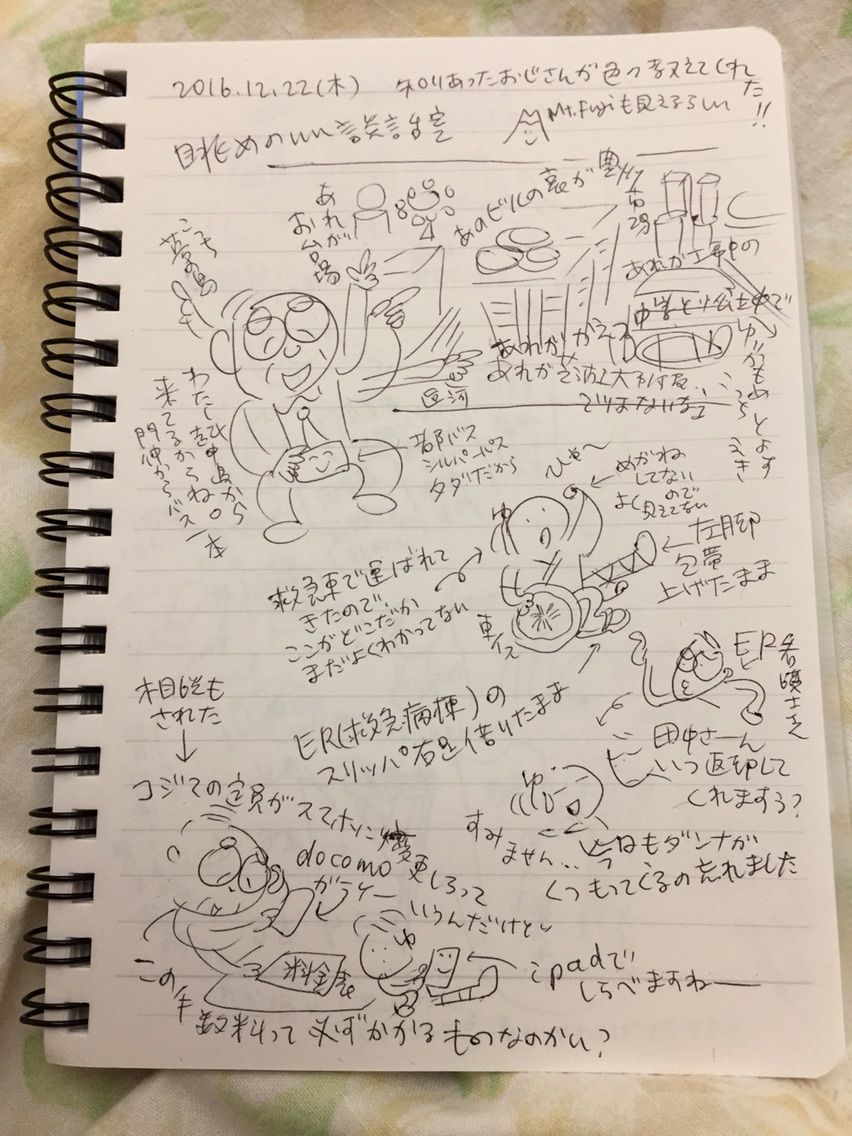 2016.12.22(木) 知りあったおじさんが色々教えてくれた!!
眺めのいい談話室
Mt.Fujiも見えるらしい
あれが
お台場
あのビルの裏が豊洲市場
あれが工事中の
あれが
あれが
ゆりかもめとよす
えき
こっち
運河
わたしも
から
来てるからね。
門仲からバス一本
都バス
シルバーパス
タダだから
ひゃ〜
めがね
してない
ので
よく見えてない
ゆ
左脚
包帯
上げたまま
車イス
救急車で運ばれて
きたので、
ここがどこだか
まだよくわかってない
ER(救急病棟)の
スリッパ右足借りたまま
ER看護士さん
田中さーん
いつ返却して
くれますう?
ゆ
すみ
ません…
今日もダンナが
くつもってくるの忘れました
相談も
された
コジマの店員がスマホに変更しろって
いうんだけど〜
docomo
ガラケー
料金表
ゆ
ipadで
しらべますねー
この手数料って必ずかかるものなのかい?